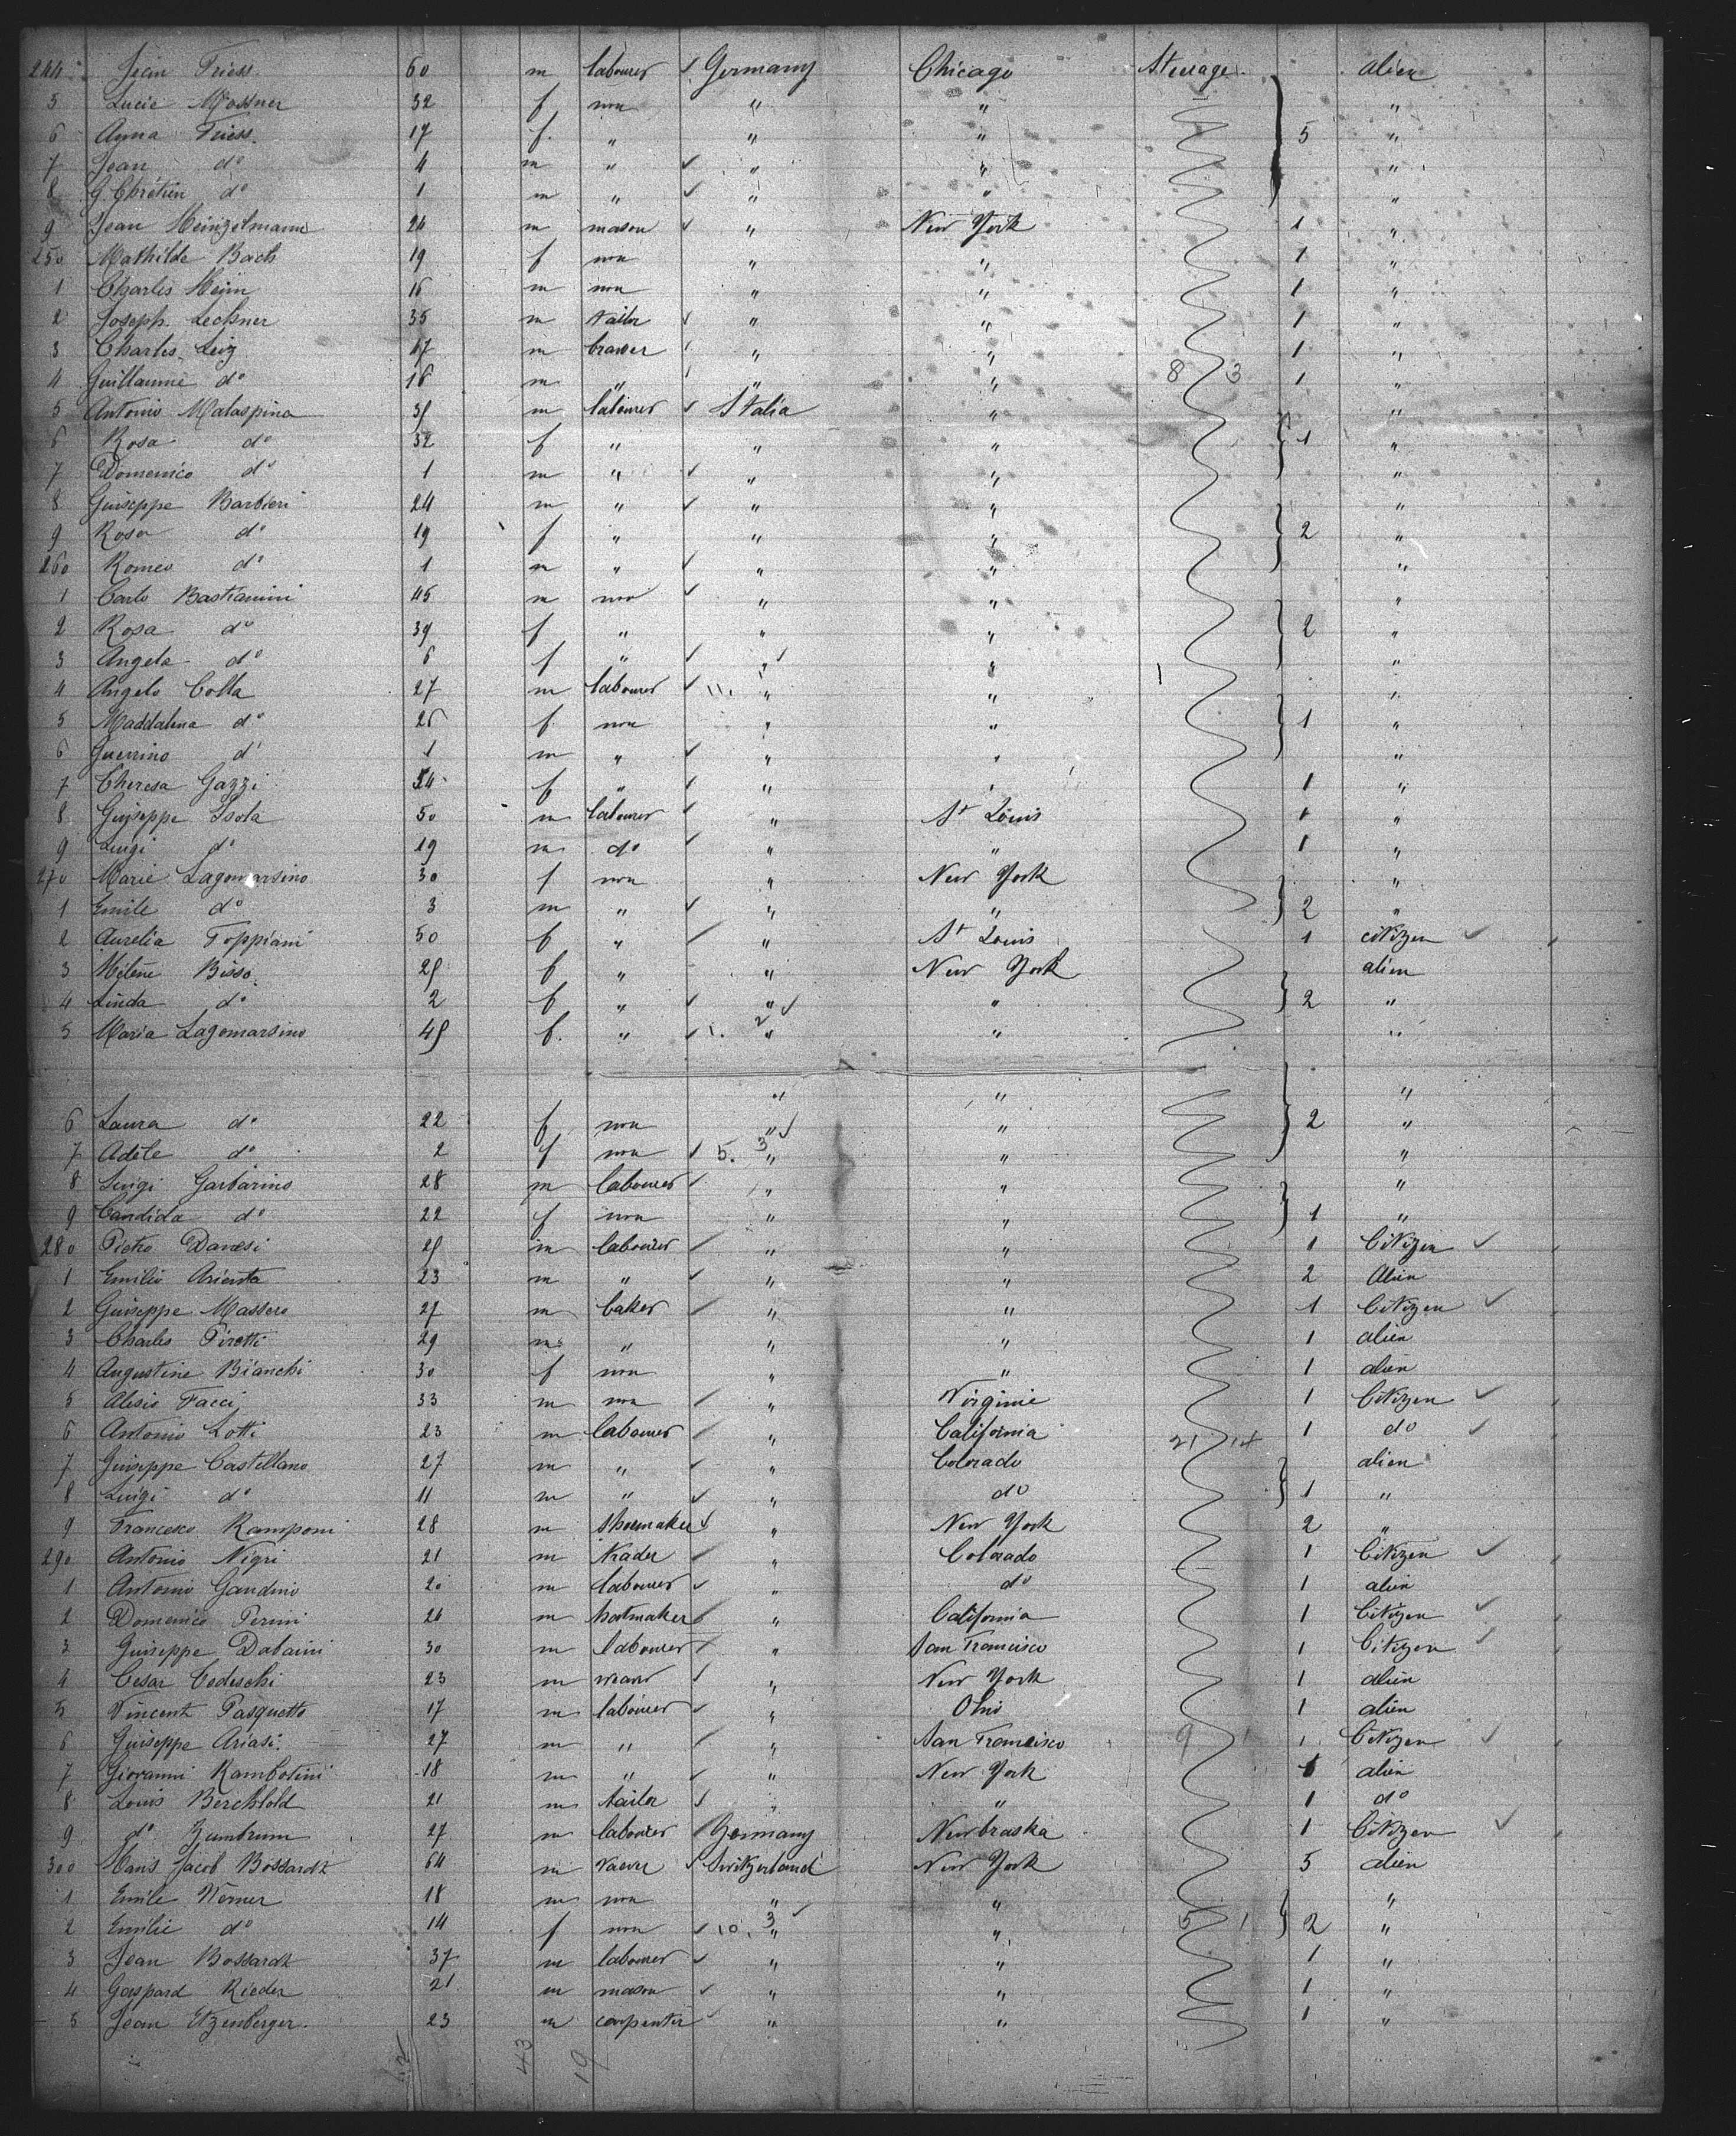 244 Jean Triess. 60 m labourer ✓ Germany Chicago Steerage. alien
5 Lucie Mossner 32 f non " " "
6 Anna Triess. 17 f. " " " 5 "
7 Jean do 4 m " ✓ " " "
8 G. Chrétien do 1 m " ✓ " " "
9 Jean Heinzelmann 24 m mason ✓ " New York 1 "
250 Mathilde Bach 19 f non " " 1 "
1 Charles Heim 16 m non " " 1 "
2 Joseph Lechner 35 m tailor ✓ " " 1 "
3 Charles Leig 17 m brawer " " 1 "
4 Guillaume do 16 m " " " 8 3 1 "
5 Antonio Malaspina 35 m labourer ✓ Italia " "
6 Rosa do 32 f " " " 1 "
7 Domenico do 1 m " ✓ " " "
8 Guiseppe Barbieri 24 m " ✓ " " "
9 Rosa do 19 f " " " 2 "
260 Romeo do 1 m " ✓ " " "
1 Carlo Bastianini 45 m non ✓ " " "
2 Rosa do 39 f " " " 2 "
3 Angela do 6 f " ✓ " ✓ " "
4 Angelo Colla 27 m labourer ✓ 11. " " 1 "
5 Maddalena do 26 f non " " 1 "
6 Guerrino do 1 m " ✓ " " "
7 Theresa Gazzi 54 f " ✓ " " 1 "
8 Guiseppe Isola 50 m labourer ✓ " St Louis 1 "
9 Luigi do 19 m do ✓ " " 1 "
270 Marie Lagomarsino 30 f non " New York "
1 Emile do 3 m " ✓ " " 2 "
2 Aurelia Toppiani 50 f " ✓ " St Louis 1 citizen ✓
3 Hélène Bisso. 25 f " " New York alien
4 Linda do 2 f " ✓ " ✓ " 2 "
5 Maria Lagomarsino 45 f. " ✓ 1. 2 " " "
" " "
6 Laura do 22 f non " ✓ " 2 "
7 Adele do 2 f non ✓ 5. 3 " " "
8 Luigi Garbarino 28 m labourer ✓ " " "
9 Candida do 22 f non " " 1 "
280 Pietro Danesi 25 m labourer ✓ " " 1 Citizen ✓
1 Emilio Arienta 23 m " ✓ " " 2 Alien
2 Guiseppe Massero 27 m baker ✓ " " 1 Citizen ✓
3 Charles Piretti 29 m " " " 1 alien
4 Augustine Bianchi 30 f non " " 1 alien
5 Alesio Facci 33 m non ✓ " Virginie 1 Citizen ✓
6 Antonio Lotti 23 m labourer ✓ " California 21 14 1 do ✓
7 Guiseppe Castellano 27 m " ✓ " Colorado alien
8 Luigi do 11 m " ✓ " do 1 "
9 Francesco Ramponi 28 m shoemaker ✓ " New York 2 "
290 Antonio Nigri 21 m trader ✓ " Colorado 1 Citizen ✓
1 Antonio Gandino 20 m labourer ✓ " do 1 alien
2 Domenico Perini 26 m hatmaker ✓ " California 1 Citizen ✓
3 Guiseppe Dabaini 30 m labourer ✓ " San Francisco 1 Citizen ✓
4 Cesar Cedeschi 23 m weaver ✓ " New York 1 alien
5 Vincent Pasquetto 17 m labourer ✓ " Ohio 1 alien
6 Guiseppe Ariasi. 27 m " ✓ " San Francisco 9 1 1 Citizen ✓
7 Giovanni Rambotini 18 m " ✓ " New York 1 alien
8 Louis Berchtold 21 m tailor ✓ " " 1 do
9 do Zumbrum 27 m labourer ✓ Germany Newbraska 1 Citizen ✓
300 Hans Jacob Bossardt 64 m ✓ Switzerland New York 5 alien
1 Emile Werner 18 m non " " "
2 Emilie do 14 f non ✓ 10. 3 " ✓ " 5 1 2 "
3 Jean Bossardt 37 m labourer ✓ " " 1 "
4 Gaspard Rieder 21 m mason ✓ " " 1 "
5 Jean Etzenberger. 23 m carpenter ✓ " " 1 "
43 19